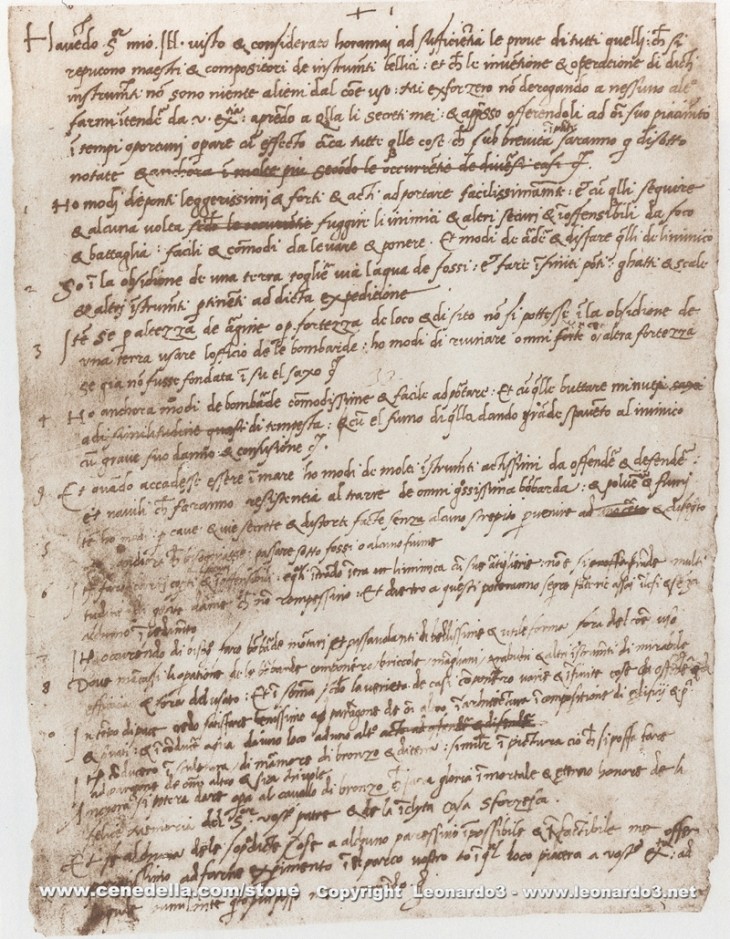 + 1
Havēdo Sr mio Ill. visto & considerato horamai ad sufficiētia le prove di tutti quelli ch si
reputono maestri & compositori de instrumti bellici: et ch le invētione & operatione di dicti
instrumti nō sono niente alieni dal cōe uso: Mi exforzero nō derogando a nessuno
farmi itendē da v. exa: aprēdo a qlla li secreti mei: & apsso offerendoli ad ōi suo piacimēto
i tempi oportuni operare cū effecto circa tutte qlle cose ch sub brevità i parte saranno q disotto
notate & anchora i molte piu secōdo le occurrētie de diversi casi
1 Ho modi de ponti leggerissimi & forti & acti ad portare facilissimamte: et cū qlli seguire
& alcuna volta fuggire li inimici & altri securi & ioffensibili da foco
& battaglia: facili & cōmodi da levare & ponere. Et modi de ardē & disfare qlli de linimico
2 So i la obsidione de una terra toglier via laqua de fossi: et fare ifiniti pōti ghatti & scale
& altri istrumti ptinenti ad dicta expeditione
3 Itē se p altezza de argine o p fortezza de loco & di sito nō si pottesse i la obsidione de
una terra usare lofficio de le bombarde: ho modi di ruinare omni forte o altra fortezza
se gia nō fusse fondata i su el saxo
4 Ho anchora modi de bombarde cōmodissime & facile ad portare: Et cū qlle buttare minuti saxi
adi similitudine quasi di tempesta: & cū el fumo di qlla dando grāde spavēto al inimico
cū grave suo danno & confusione
9 Et quādo accadesse essere i mare ho modi de molti istrumti actissimi da offendē & defendē
et navili ch faranno resistentia al trarre de omni grossissima bōbarda: & polver & fumi
5 ho modi p cave & vie secrete & distorte facte senza alcuno strepito p venire ad & disegto
anchora ch bisogniasse passare sotto fossi o alcuno fiume
6 carri coperti & inoffensibili: e quali itrādo intra li inimica cū sue artiglierie: nō e si grāde multi
tudine di gente darme ch nō rompessino: Et dietro a questi poteranno seguire fāterie assai ilesi & senza
alchuno ipedimēto
7 Itē occurrendo di bisogno faro bōbarde mortari et passavolanti di bellissime & utile forme fora del cōe uso
8 Dove mācassi la operatione de le bōbarde cōmponero briccole māghani trabuchi & altri istrumti di mirabile
efficacia & fora del usato: Et i soma secōdo la varieta de casi cōponero varie & ifinite cose da offendē &
10 In tempo di pace credo satisfare benissimo ad paragone de ōi altro i architectura i compositione di edificii &
& privati: & i conducē aqua da uno loco ad uno altro
Itē conducero i sculptura di marmore di bronzo & di terra: similtē i pictura cio ch si possa fare
ad paragone de omni altro & sia chi vole
Anchora si potera dare opa al cavallo di bronzo ch sara gloria imortale & eterno honore de la
felice memoria del Sor vostro patre & de la iclyta casa sforzesca.
Et se alchuna de le sopdicte cose a alchuno paressino ipossibile & ifactibile me offero
ad farne experimento i el parco vostro o i qual loco piacera a vostra Exa: ad
www.cenedella.com/stone Copyright Leonardo3 - www.leonardo3.net